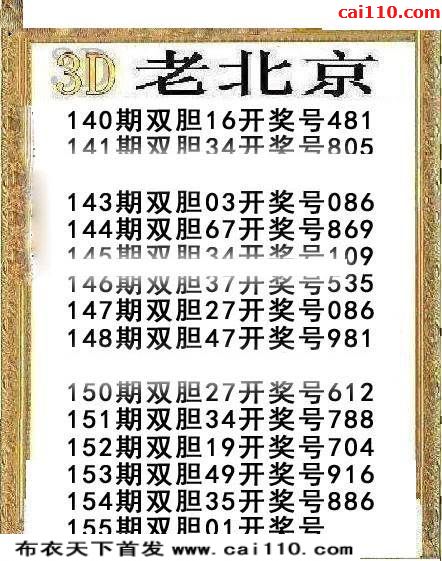 cai110.com
3D 老北京
140期双胆16开奖号481
141期双胆34开奖号805
143期双胆03开奖号086
144期双胆67开奖号869
145期双胆34开奖号109
146期双胆37开奖号535
147期双胆27开奖号086
148期双胆47开奖号981
150期双胆27开奖号612
151期双胆34开奖号788
152期双胆19开奖号704
153期双胆49开奖号916
154期双胆35开奖号886
155期双胆01开奖号
布衣天下首发 www.cai110.com